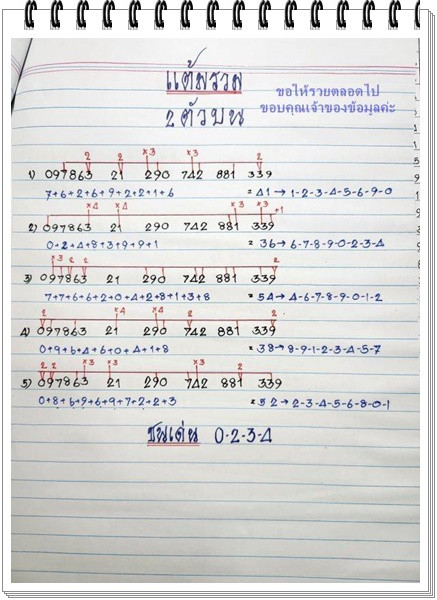 แต้มรวม
2 ตัวบน
ขอให้รวยตลอดไป
ขอบคุณเจ้าของข้อมูลค่ะ
2 2 x3 x3 2
1) 097863 21 290 742 881 339
7+6+2+6+9+2+2+1+6 = 41 → 1-2-3-4-5-6-9-0
x4 x4 x3 x3 +1
2) 097863 21 290 742 881 339
0+2+4+8+3+9+9+1 = 36 → 6-7-8-9-0-2-3-4
x3 2 2 2
3) 097863 21 290 742 881 339
7+7+6+6+2+0+4+2+8+1+3+8 = 54 → 4-6-7-8-9-0-1-2
2 x4 x4 2 2
4) 097863 21 290 742 881 339
0+9+6+4+6+0+4+1+8 = 38 → 8-9-1-2-3-4-5-7
2 2 x3 x3 x3 2
5) 097863 21 290 742 881 339
0+8+6+9+6+9+7+2+2+3 = 52 → 2-3-4-5-6-8-0-1
ชนเด่น 0-2-3-4